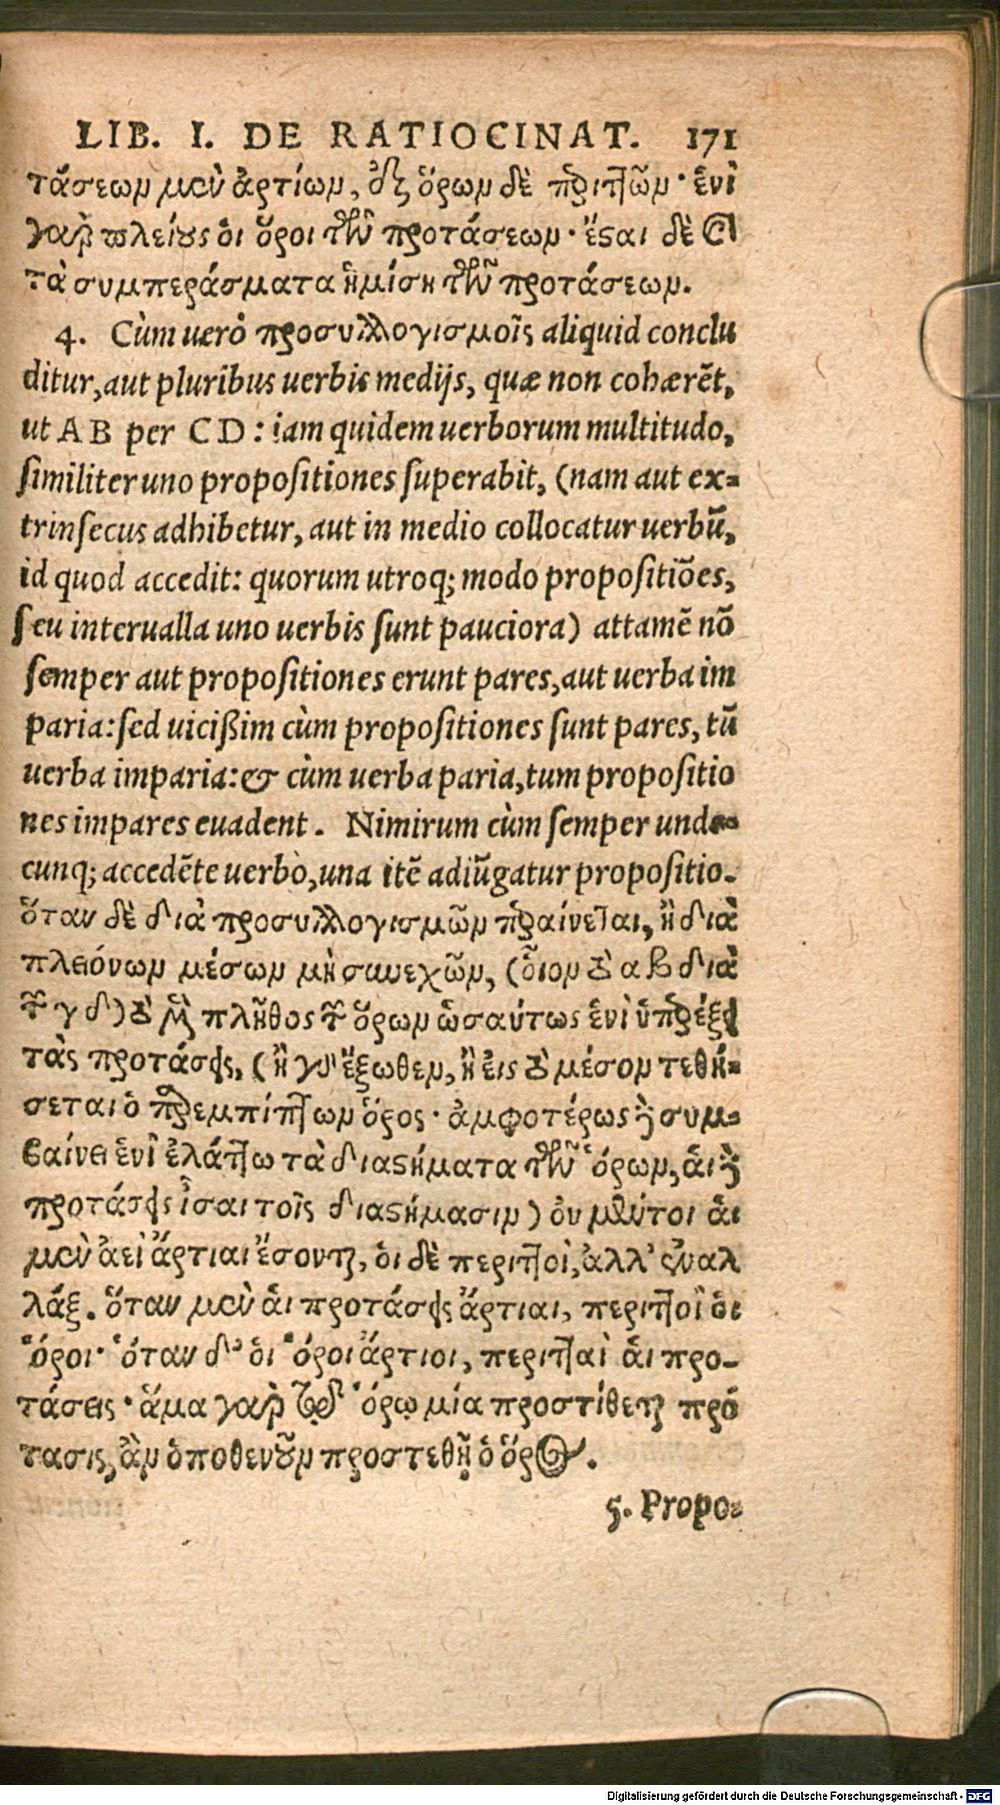 LIB. I. DE RATIOCINAT. 171
τάσεων μὲν ἀρτίων, ἐκ ὅρων δὲ περιττῶν· ἑνὶ
γὰρ πλείους οἱ ὅροι τῶν προτάσεων· ἔσται δὲ καὶ
τὰ συμπεράσματα ἡμίση τῶν προτάσεων.
4. Cùm uerò προσυλλογισμοῖς aliquid conclu
ditur, aut pluribus uerbis medijs, quæ non cohærēt,
ut A B per C D : iam quidem uerborum multitudo,
similiter uno propositiones superabit, (nam aut ex=
trinsecus adhibetur, aut in medio collocatur uerbū,
id quod accedit: quorum utroq; modo propositiōes,
seu interualla uno uerbis sunt pauciora) attamē nō
semper aut propositiones erunt pares, aut uerba im
paria: sed uicißim cùm propositiones sunt pares, tū
uerba imparia: & cùm uerba paria, tum propositio
nes impares euadent. Nimirum cùm semper unde=
cunq; accedēte uerbo, una itē adiūgatur propositio.
ὅταν δὲ διὰ προσυλλογισμῶν περαίνεται, ἢ διὰ
πλειόνων μέσων μὴ συνεχῶν, (οἷον τὸ α β διὰ
τῶν γ δ) τὸ μὲν πλῆθος τῶν ὅρων ὡσαύτως ἑνὶ ὑπερέξει
τὰς προτάσεις, (ἢ γὰρ ἔξωθεν, ἢ εἰς τὸ μέσον τεθή=
σεται ὁ παρεμπίπτων ὅρος· ἀμφοτέρως δὲ συμ=
βαίνει ἑνὶ ἐλάττω τὰ διαστήματα τῶν ὅρων, αἱ δὲ
προτάσεις ἴσαι τοῖς διαστήμασιν) οὐ μέντοι αἱ
μὲν ἀεὶ ἄρτιαι ἔσονται, οἱ δὲ περιττοὶ, ἀλλ’ ἐναλ
λάξ. ὅταν μὲν αἱ προτάσεις ἄρτιαι, περιττοὶ οἱ
ὅροι· ὅταν δ’ οἱ ὅροι ἄρτιοι, περιτταὶ αἱ προ-
τάσεις· ἅμα γὰρ τῷ ὅρῳ μία προστίθεται πρό
τασις, ἂν ὁποθενοῦν προστεθῇ ὁ ὅρος.
5. Propo=
Digitalisierung gefördert durch die Deutsche Forschungsgemeinschaft - DFG